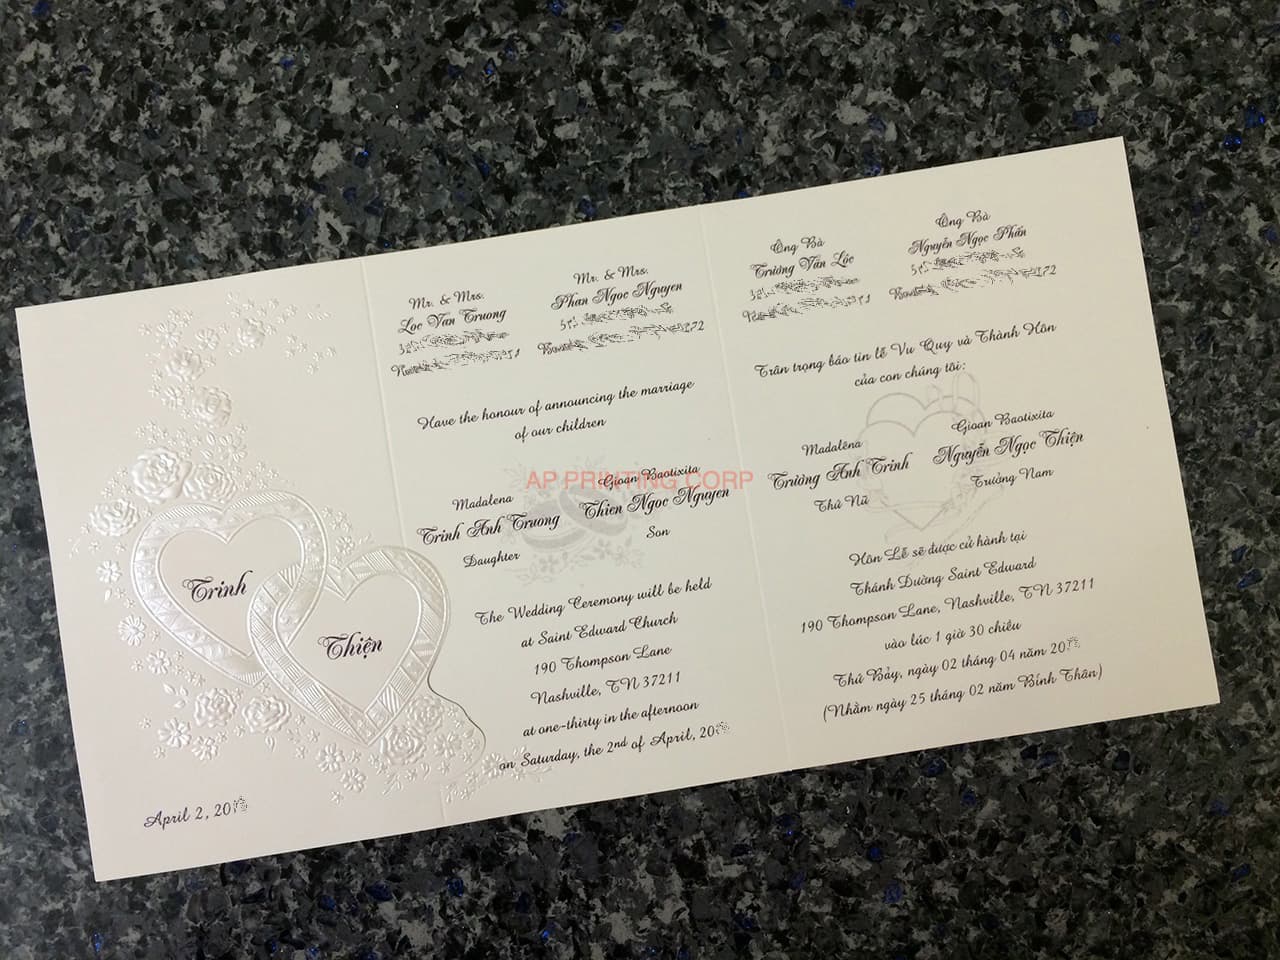 Trinh
Thiện
April 2, 20
Mr. & Mrs.
Loc Van Truong
Mr. & Mrs.
Phan Ngoc Nguyen
Have the honour of announcing the marriage
of our children
Madalena
Trinh Anh Truong
Daughter
Gioan Baotixita
Thien Ngoc Nguyen
Son
The Wedding Ceremony will be held
at Saint Edward Church
190 Thompson Lane
Nashville, TN 37211
at one-thirty in the afternoon
on Saturday, the 2nd of April, 20
AP PRINTING CORP
Ông Bà
Trương Văn Lóc
Ông Bà
Nguyễn Ngọc Phấn
Trân trọng báo tin lễ Vu Quy và Thành Hôn
của con chúng tôi:
Madalêna
Trương Anh Trinh
Thứ Nữ
Gioan Baotixita
Nguyễn Ngọc Thiện
Trưởng Nam
Hôn Lễ sẽ được cử hành tại
Thánh Đường Saint Edward
190 Thompson Lane, Nashville, TN 37211
vào lúc 1 giờ 30 chiều
Thứ Bảy, ngày 02 tháng 04 năm 20
(Nhằm ngày 25 tháng 02 năm Bính Thân)